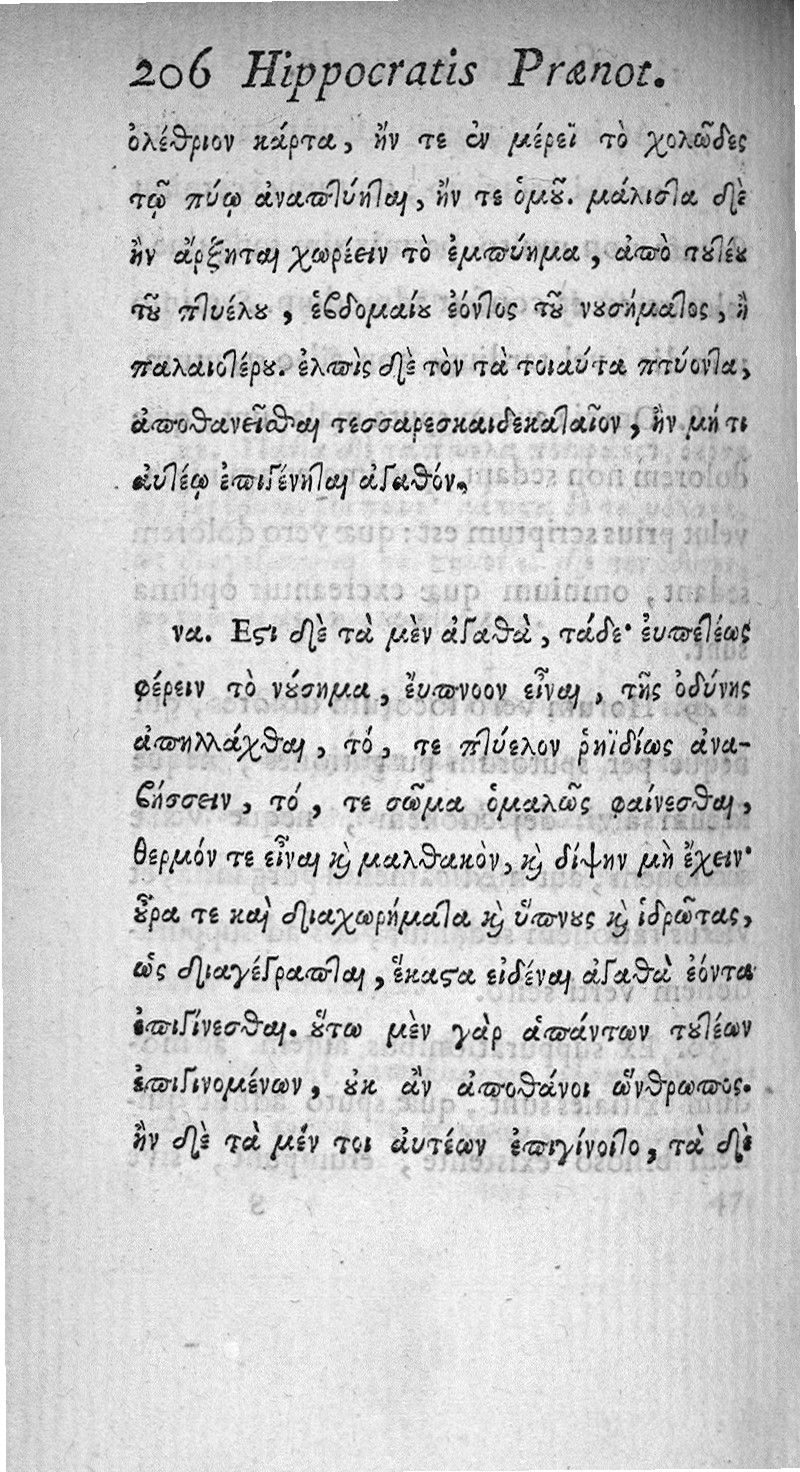 206 Hippocratis Prænot.
ὀλέθριον κάρτα, ἤν τε ἐν μέρεϊ τὸ χολῶδες
τῷ πύῳ ἀναπτύηται, ἤν τε ὁμȣ͂. μάλιστα δὲ
ἢν ἄρξηται χωρέειν τὸ ἐμπύημα, ἀπὸ τȣτέȣ
τȣ͂ πτυέλȣ, ἑβδομαίȣ ἐόντος τȣ͂ νȣσήματος, ἢ
παλαιοτέρȣ. ἐλπὶς δὲ τὸν τὰ τοιαύτα πτύοντα,
ἀποθανεῖσθαι τεσσαρεσκαιδεκαταῖον, ἢν μή τι
ἀυτέῳ ἐπιγένηται ἀγαθόν.
να. Εϛι δὲ τὰ μὲν ἀγαθὰ, τάδε· ἐυπετέως
φέρειν τὸ νȣ́σημα, ἔυπνοον εἶναι, τῆς ὀδύνης
ἀπηλλάχθαι, τό, τε πτύελον ῥηϊδίως ἀνα-
βήσσειν, τό, τε σῶμα ὁμαλῶς φαίνεσθαι,
θερμόν τε εἶναι ϗ μαλθακὸν, ϗ δίψην μὴ ἔχειν·
ȣ̓͂ρα τε καὶ διαχωρήματα ϗ ὕπνȣς ϗ ἱδρῶτας,
ὡς διαγέγραπται, ἕκαϛα εἰδέναι ἀγαθὰ ἐόντα
ἐπιγίνεσθαι. ȣ̔́τω μὲν γὰρ ἁπάντων τȣτέων
ἐπιγινομένων, ȣκ ἂν ἀποθάνοι ὥνθρωπος.
ἢν δὲ τὰ μέν τοι ἀυτέων ἐπιγίνοιτο, τὰ δὲ